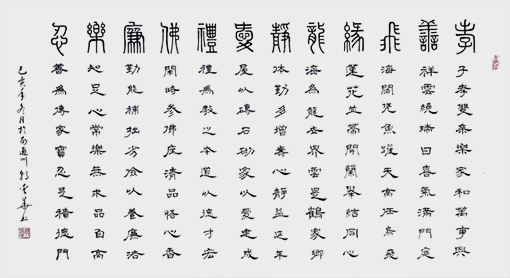 孝 子孝雙亲樂家和萬事興
譱 祥雲繞瑞日喜氣滿門庭
飛 海闊從魚躍天高任鳥飛
緣 蓮花並蒂開蘭舉結同心
龍 海為龍世界雲是鶴家鄉
靜 体勤多增壽心靜益延年
愛 屋以磚石砌家以愛成
禮 禮為教之本道以德才宏
佛 閑時參佛度清品悟心香
廉 勤能補拙劣儉以養廉洁
樂 知足心常樂無求品自高
忍 善為傳家寶忍是積德門
己亥年冬月於南通州